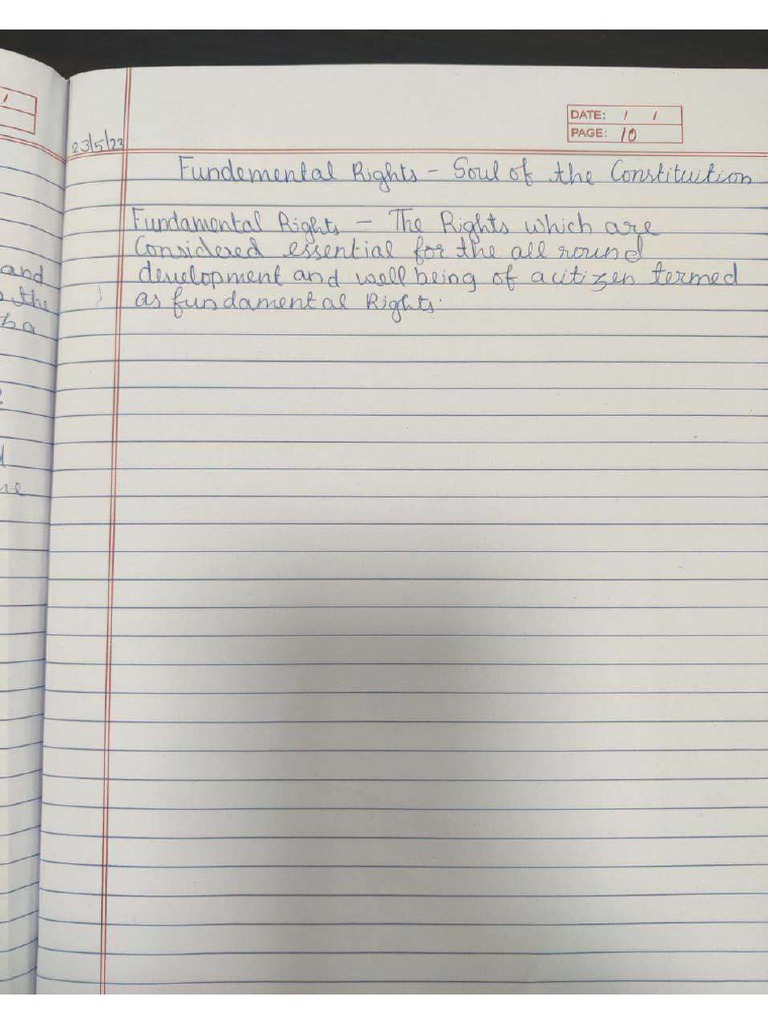 DATE: / /
PAGE: 10
23/5/23
Fundemental Rights - Soul of the Constituition
Fundamental Rights - The Rights which are
Considered essential for the all round
development and well being of a citizen termed
as fundamental Rights.
and
the